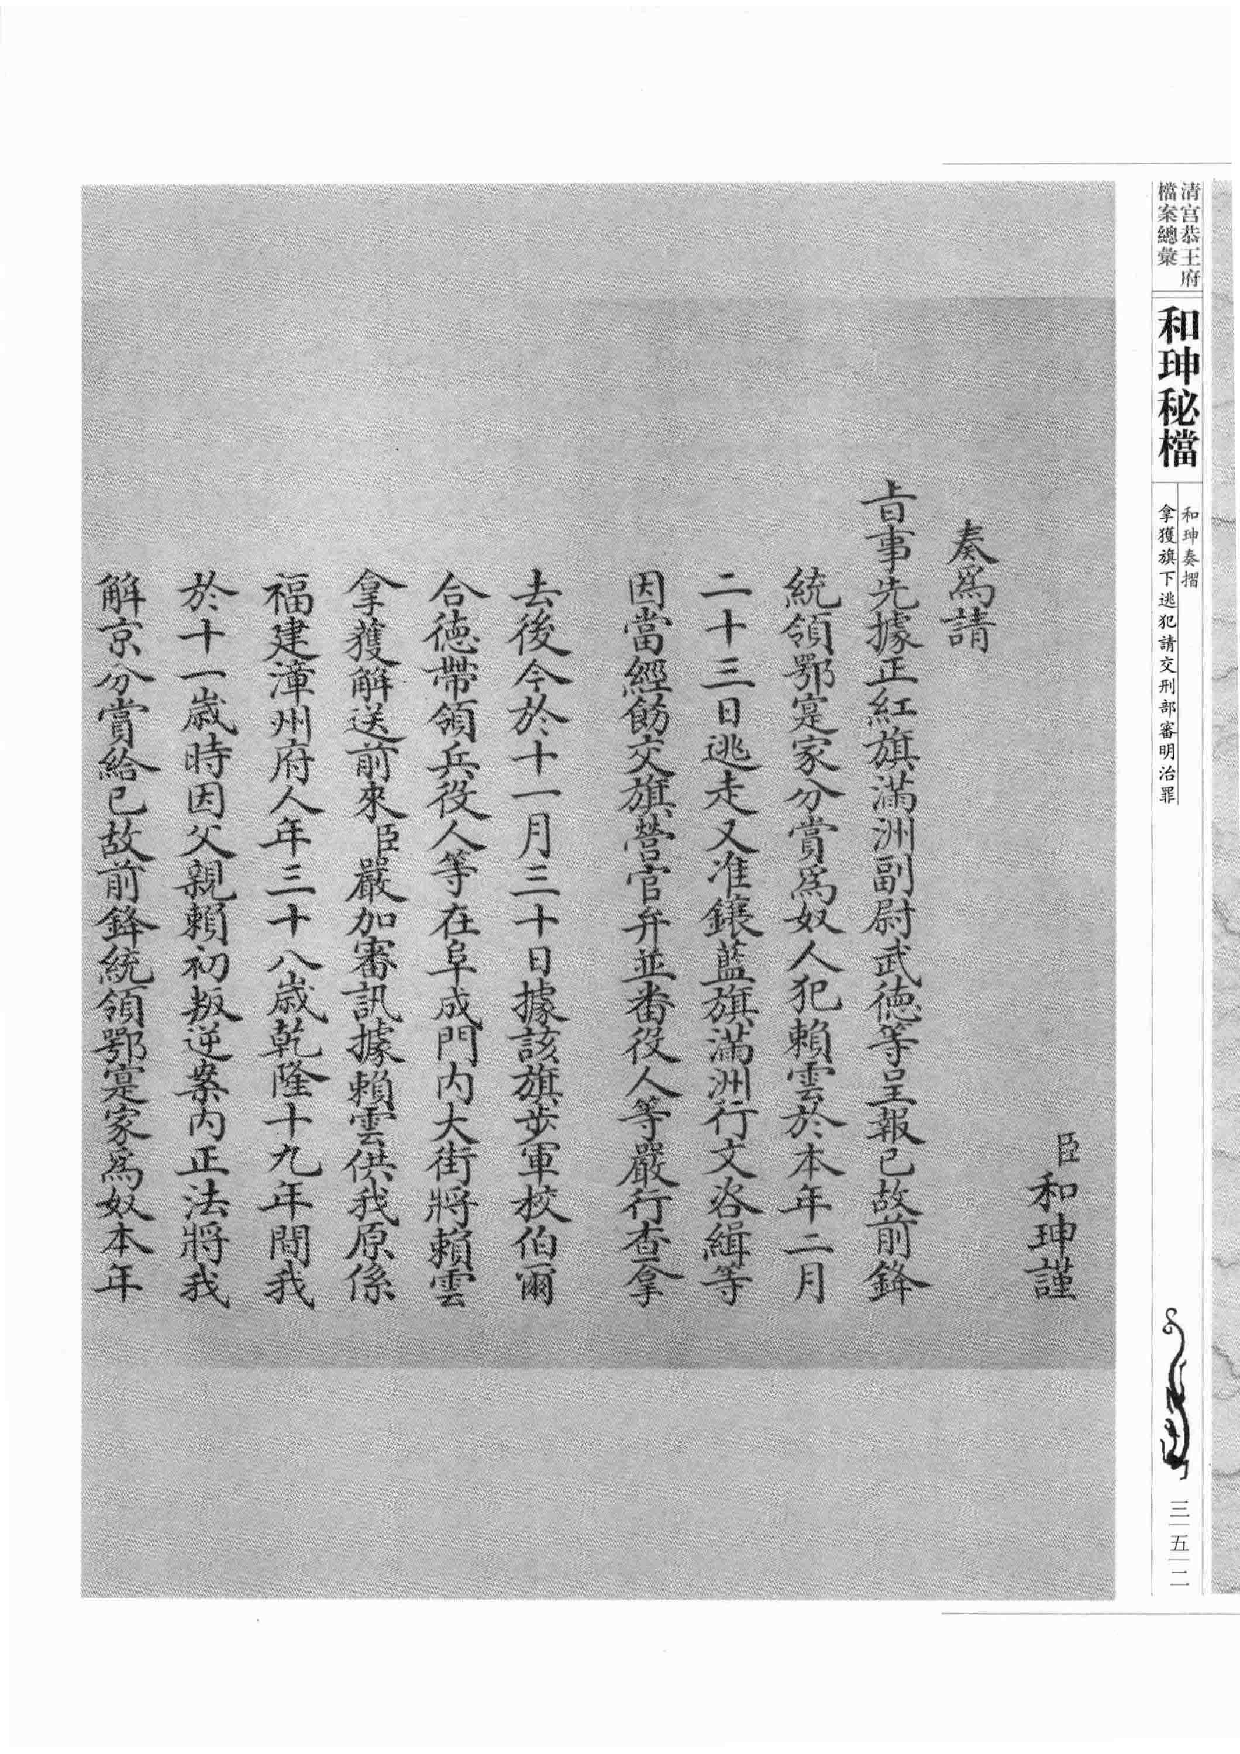 清宮恭王府
檔案總彙
和珅秘檔
和珅奏摺
拿獲旗下逃犯請交刑部審明治罪
三五二
臣和珅謹
奏為請
旨事先據正紅旗滿洲副尉武德等呈報已故前鋒
統領鄂寔家分賞為奴人犯賴雲於本年二月
二十三日逃走又准鑲藍旗滿洲行文咨緝等
因當經飭交旗營官弁並番役人等嚴行查拿
去後今於十一月三十日據該旗步軍校伯爾
合德帶領兵役人等在阜成門內大街將賴雲
拿獲解送前來臣嚴加審訊據賴雲供我原係
福建漳州府人年三十八歲乾隆十九年間我
於十一歲時因父親賴初叛逆案內正法將我
解京分賞給已故前鋒統領鄂寔家為奴本年